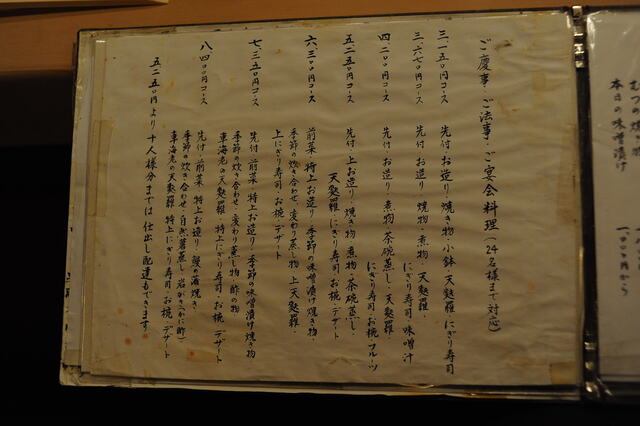 ご慶事・ご法事・ご宴会料理(24名様まで対応)
三一五〇円コース 先付・お造り・焼き物・小鉢・天麩羅・にぎり寿司
三六七〇円コース 先付・お造り・焼物・煮物・天麩羅・
にぎり寿司・味噌汁
四二〇〇円コース 先付・お造り・煮物・茶碗蒸し・天麩羅・
にぎり寿司・お椀・フルーツ
五二五〇円コース 先付・上お造り・焼き物・煮物・茶碗蒸し・
天麩羅・にぎり寿司・お椀・デザート
六三〇〇円コース 前菜・特上お造り・季節の味噌漬け焼き物・
季節の炊き合わせ・変わり蒸し物・上天麩羅・
上にぎり寿司・お椀・デザート
七三五〇円コース 先付・前菜・特上お造り・季節の味噌漬け焼き物
季節の炊き合わせ・変わり蒸し物・酢の物
車海老の天麩羅・特上にぎり寿司・お椀・デザート
八四〇〇円コース 先付・前菜・特上お造り・鰻の酒焼き・
季節の炊き合わせ・自然薯蒸し・岩がき(かに酢)
車海老の天麩羅・特上にぎり寿司・お椀・デザート
五二五〇円より十人様分までは仕出し配達もできます。
本日の味噌漬け